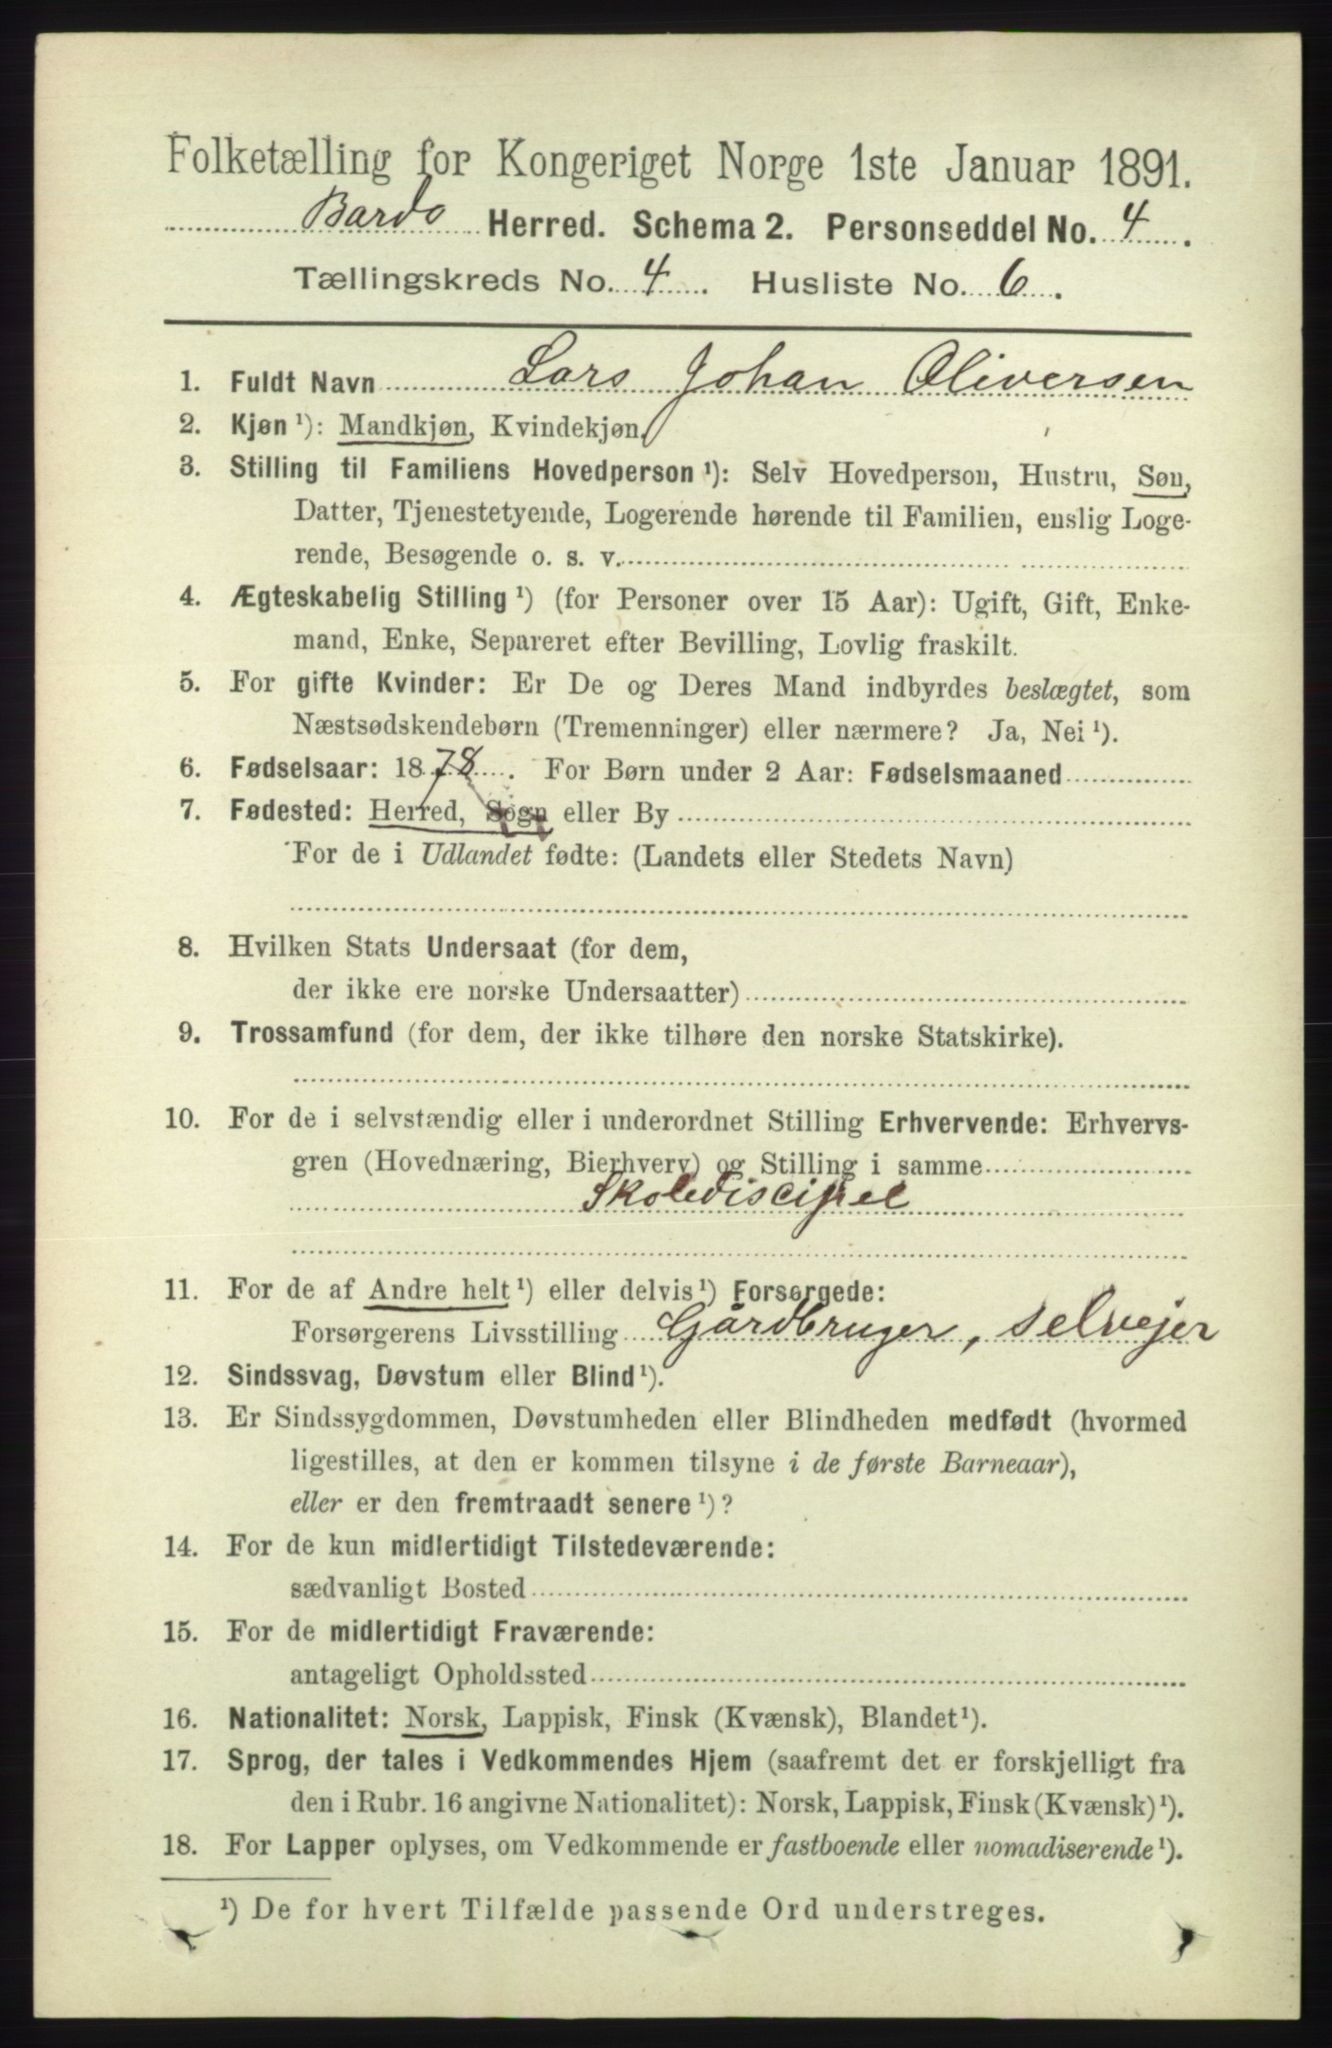 Folketælling for Kongeriget Norge 1ste Januar 1891.
Bardo Herred. Schema 2. Personseddel No. 4.
Tællingskreds No. 4. Husliste No. 6.
1. Fuldt Navn Lars Johan Oliversen
2. Kjøn ¹): Mandkjøn, Kvindekjøn.
3. Stilling til Familiens Hovedperson ¹): Selv Hovedperson, Hustru, Søn,
Datter, Tjenestetyende, Logerende hørende til Familien, enslig Loge-
rende, Besøgende o. s. v.
4. Ægteskabelig Stilling ¹) (for Personer over 15 Aar): Ugift, Gift, Enke-
mand, Enke, Separeret efter Bevilling, Lovlig fraskilt.
5. For gifte Kvinder: Er De og Deres Mand indbyrdes beslægtet, som
Næstsødskendebørn (Tremenninger) eller nærmere? Ja, Nei ¹).
6. Fødselsaar: 1878. For Børn under 2 Aar: Fødselsmaaned
7. Fødested: Herred, Sogn eller By
For de i Udlandet fødte: (Landets eller Stedets Navn)
8. Hvilken Stats Undersaat (for dem,
der ikke ere norske Undersaatter)
9. Trossamfund (for dem, der ikke tilhøre den norske Statskirke).
10. For de i selvstændig eller i underordnet Stilling Erhvervende: Erhvervs-
gren (Hovednæring, Bierhverv) og Stilling i samme
Skolediscipel
11. For de af Andre helt ¹) eller delvis ¹) Forsørgede:
Forsørgerens Livsstilling Gårdbruger, selvejer
12. Sindssvag, Døvstum eller Blind ¹).
13. Er Sindssygdommen, Døvstumheden eller Blindheden medfødt (hvormed
ligestilles, at den er kommen tilsyne i de første Barneaar),
eller er den fremtraadt senere ¹)?
14. For de kun midlertidigt Tilstedeværende:
sædvanligt Bosted
15. For de midlertidigt Fraværende:
antageligt Opholdssted
16. Nationalitet: Norsk, Lappisk, Finsk (Kvænsk), Blandet ¹).
17. Sprog, der tales i Vedkommendes Hjem (saafremt det er forskjelligt fra
den i Rubr. 16 angivne Nationalitet): Norsk, Lappisk, Finsk (Kvænsk) ¹).
18. For Lapper oplyses, om Vedkommende er fastboende eller nomadiserende ¹).
¹) De for hvert Tilfælde passende Ord understreges.